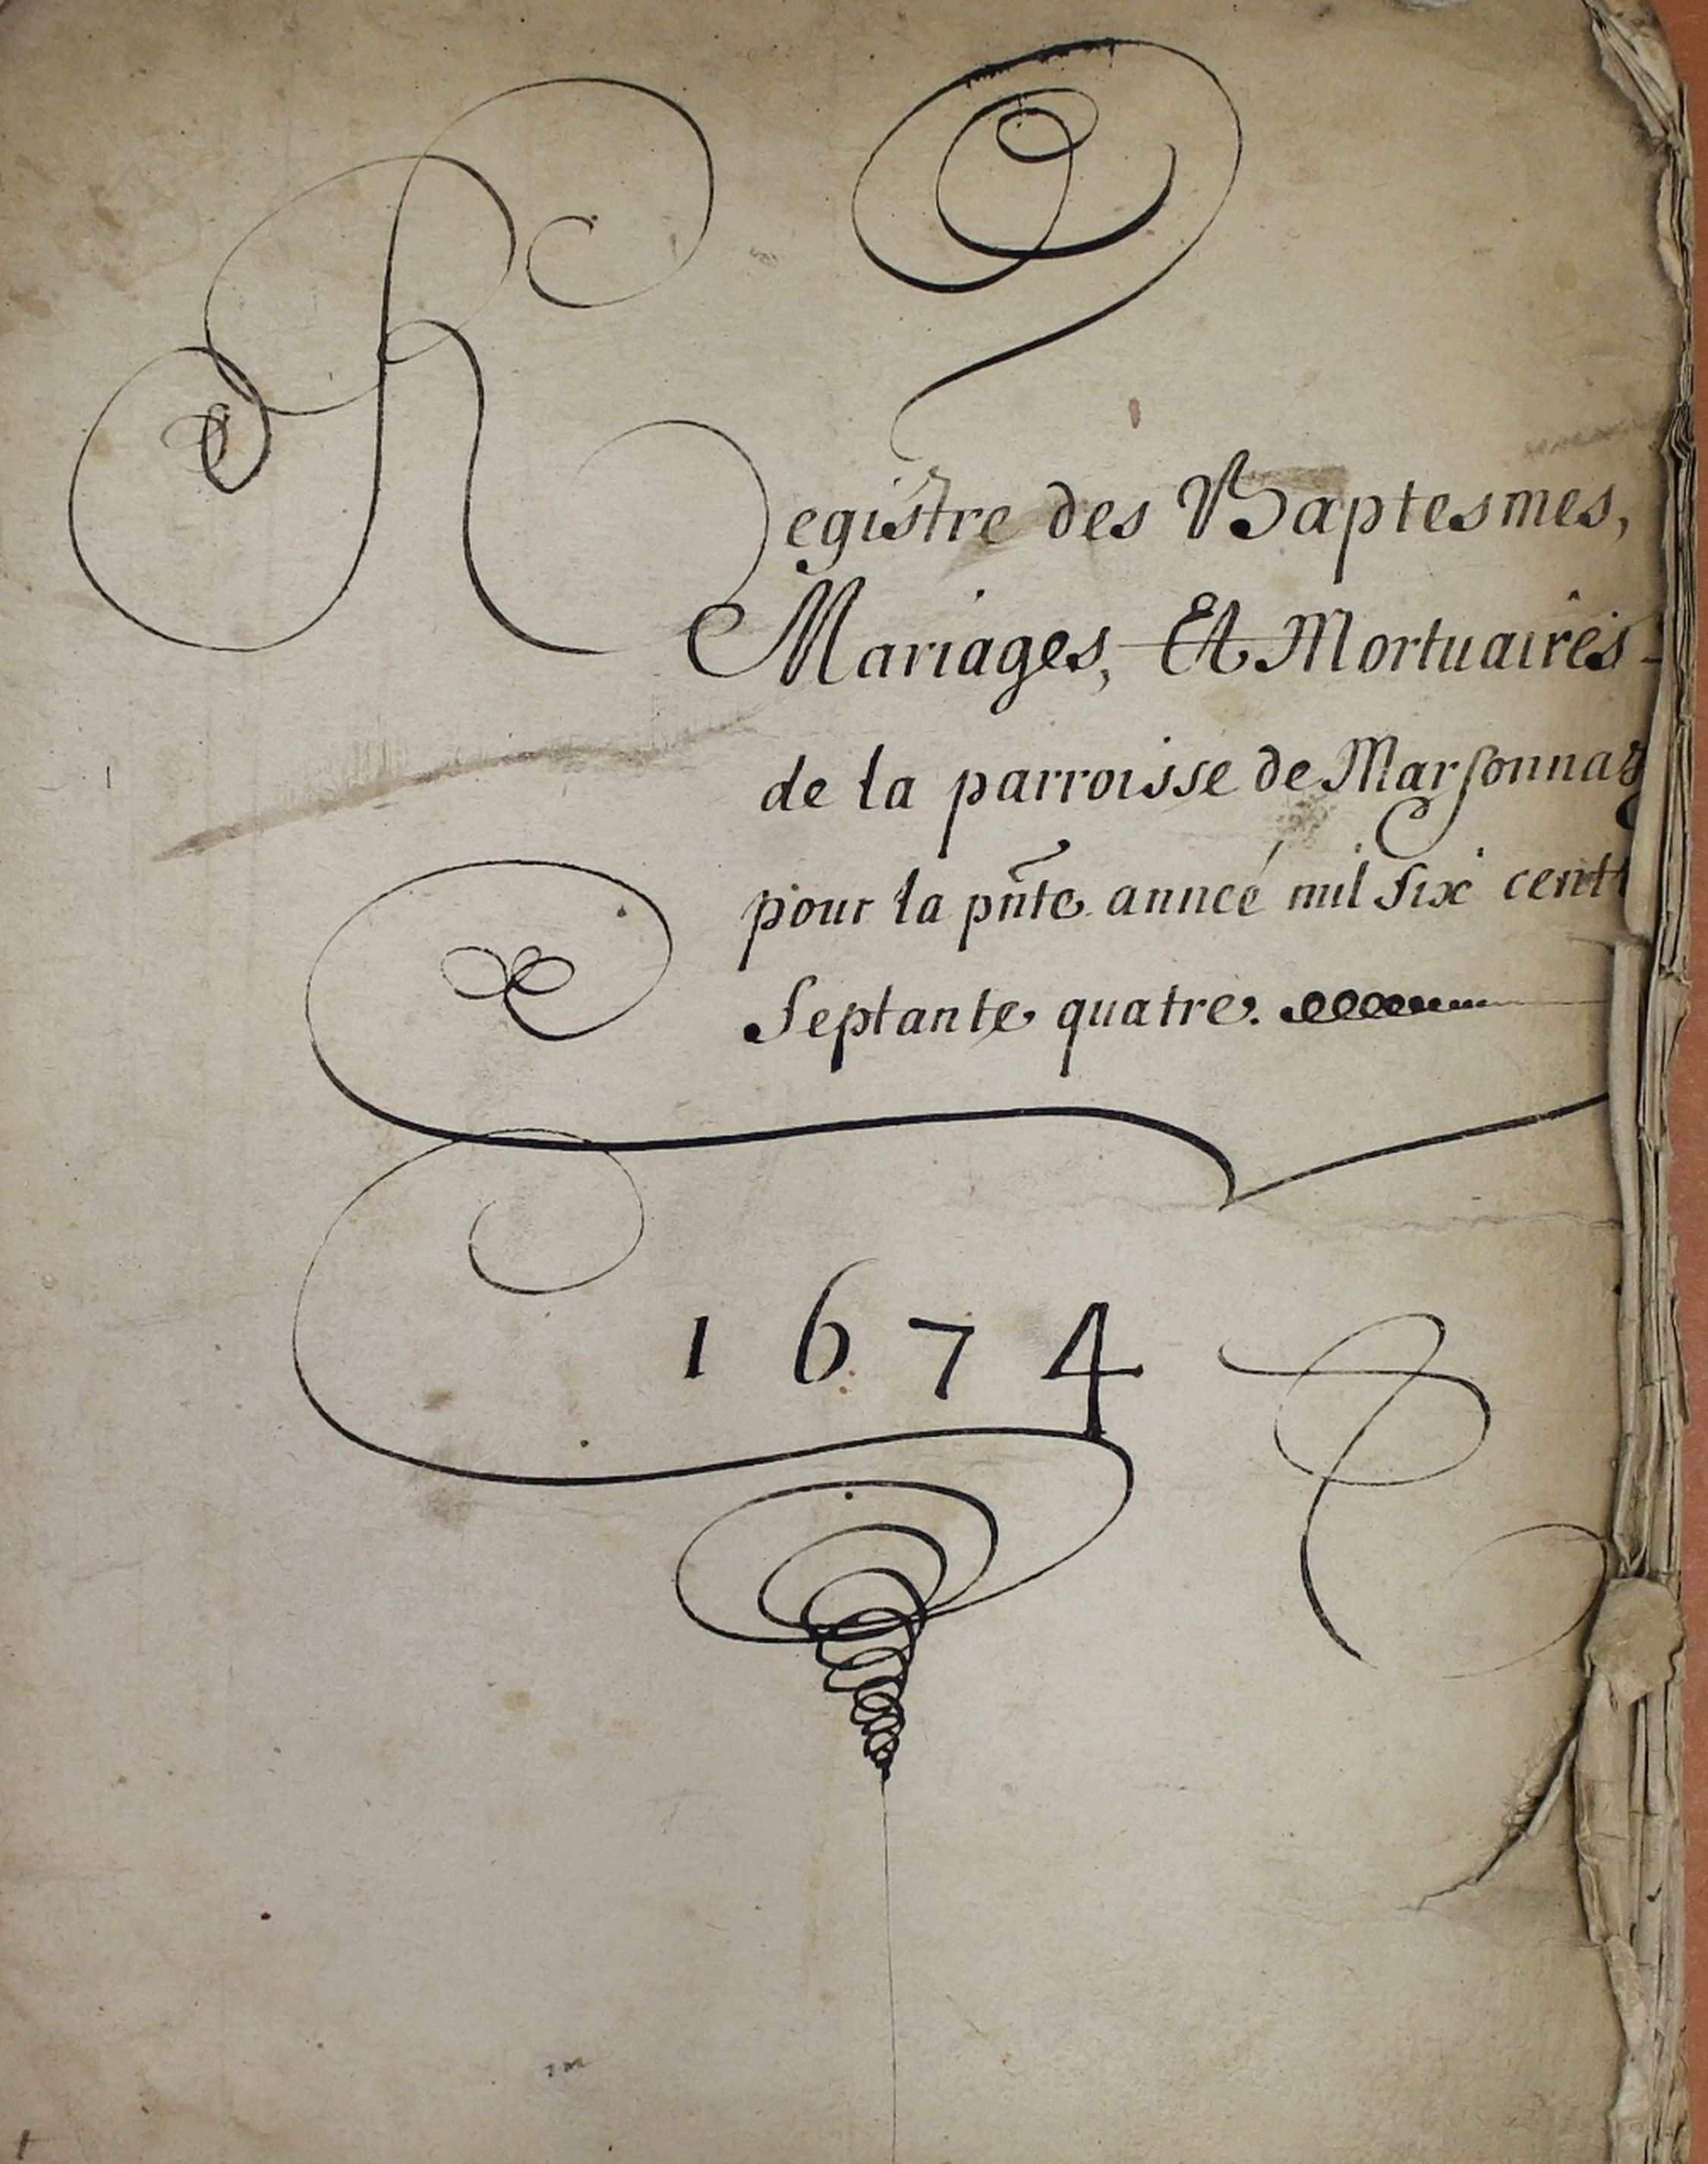 Registre des Baptesmes,
Mariages, Et Mortuaires
de la parroisse de Marsonnay
pour la pñte année mil six cent
Septante quatre.
1674